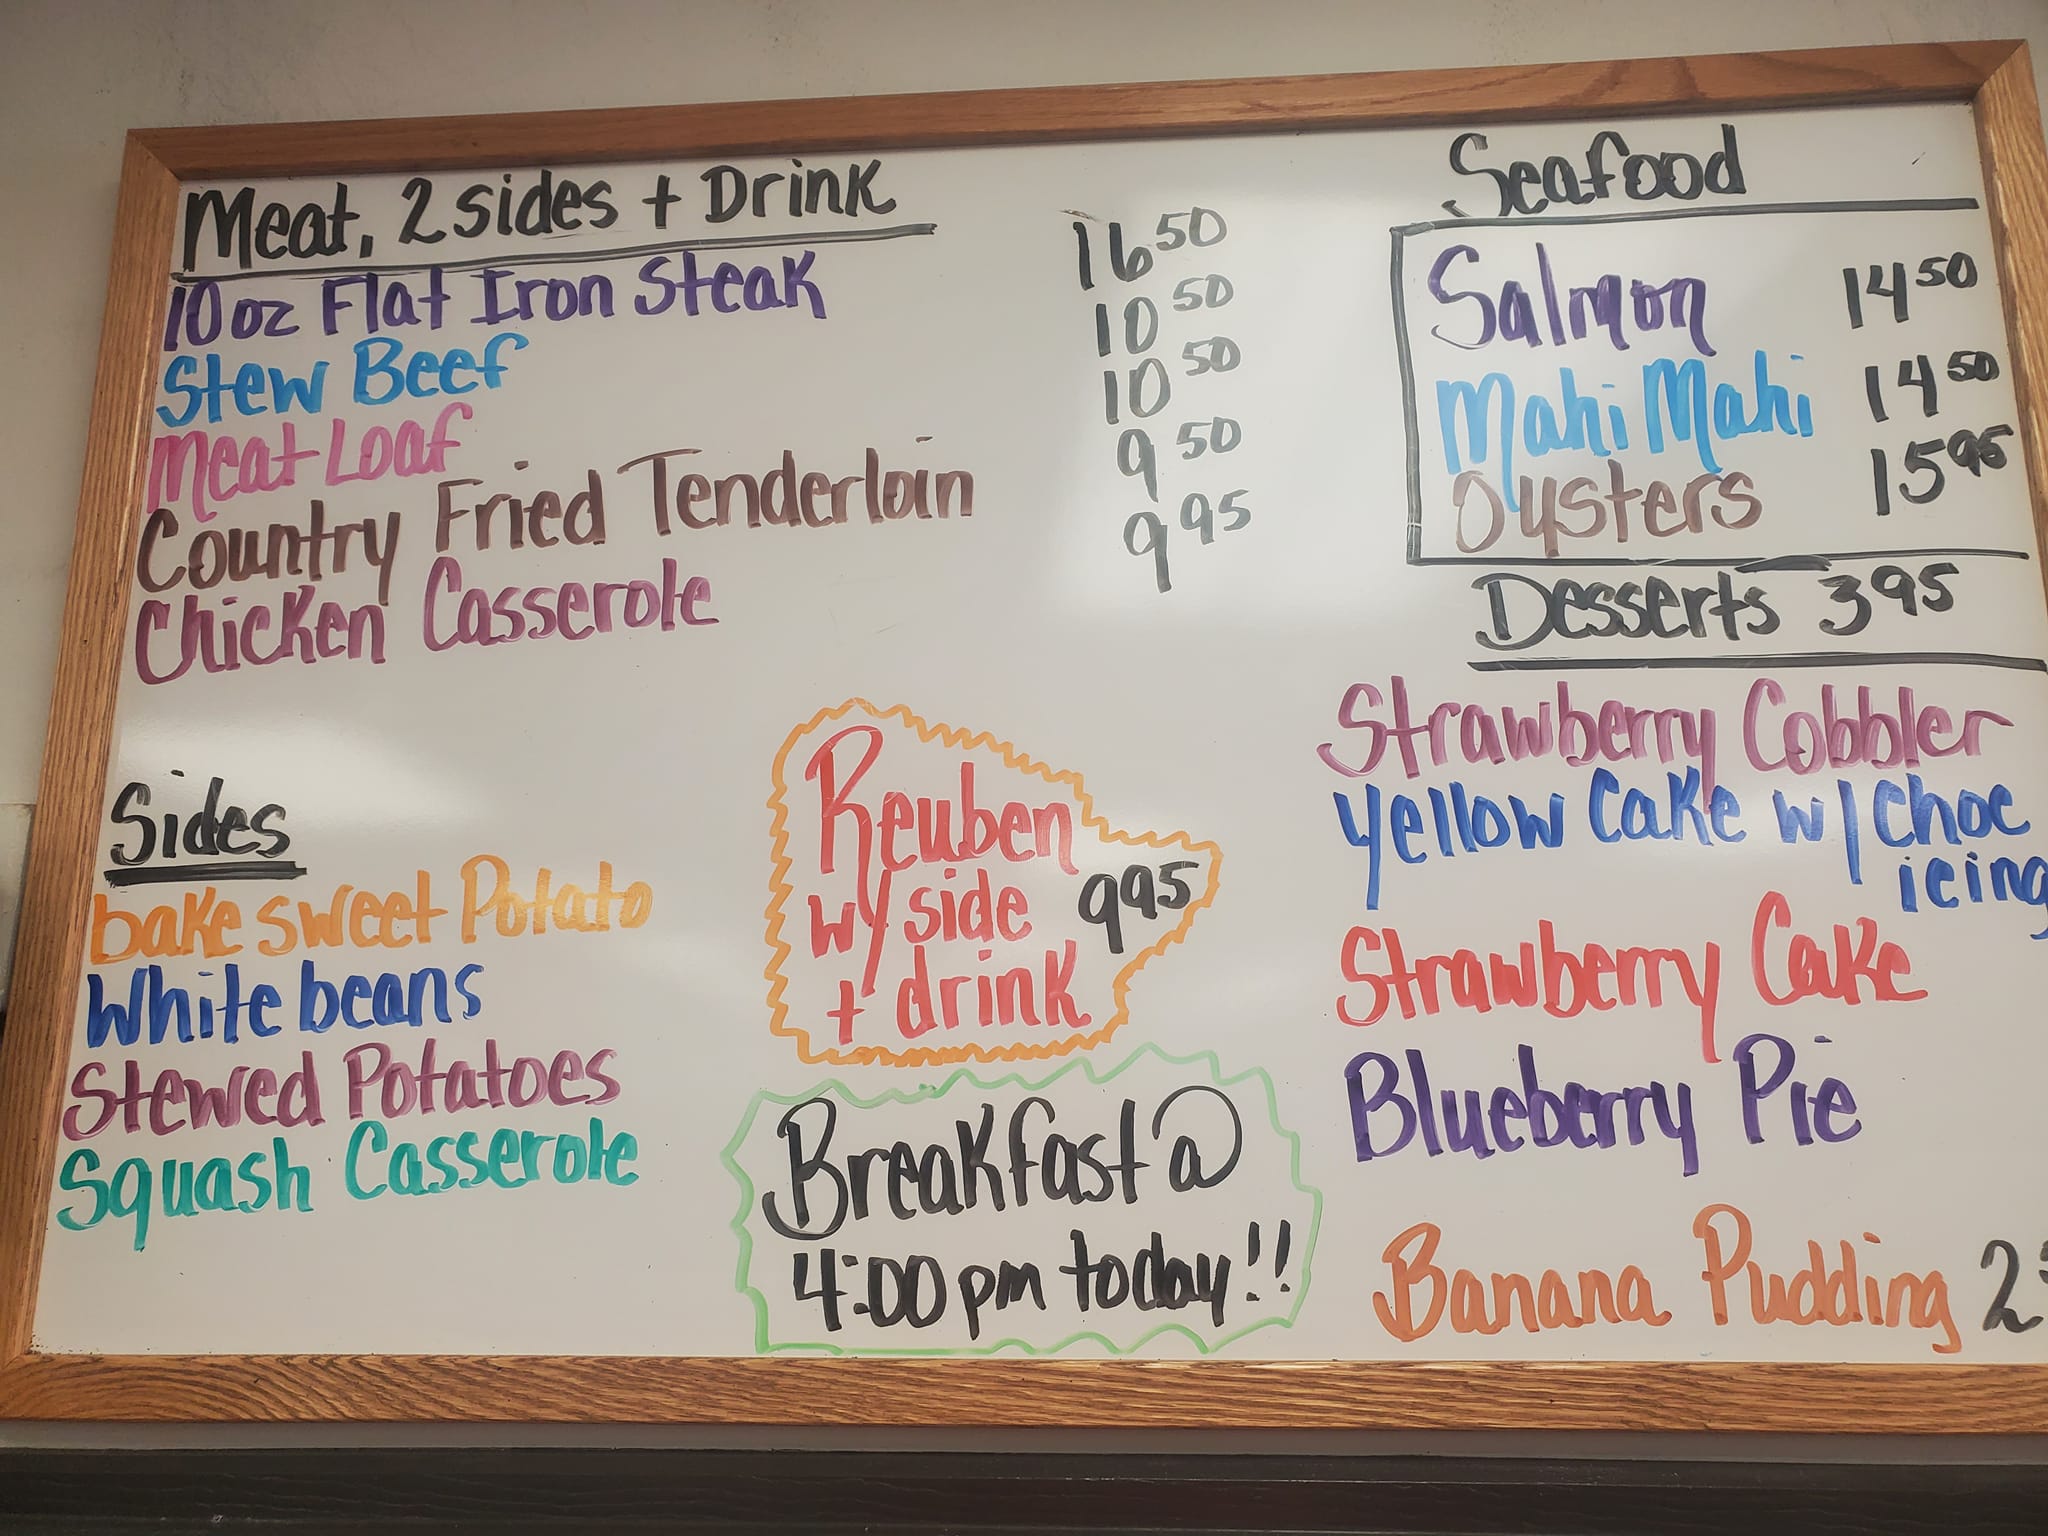 Meat, 2 sides + Drink
10 oz Flat Iron Steak 16 50
Stew Beef 10 50
Meat Loaf 10 50
Country Fried Tenderloin 9 50
Chicken Casserole 9 95
Sides
bake sweet Potato
White beans
Stewed Potatoes
Squash Casserole
Reuben
w/ side 9 95
+ drink
Breakfast @
4:00 pm today!!
Seafood
Salmon 14 50
Mahi Mahi 14 50
Oysters 15 95
Desserts 3 95
Strawberry Cobbler
Yellow Cake w/ Choc
icing
Strawberry Cake
Blueberry Pie
Banana Pudding 2